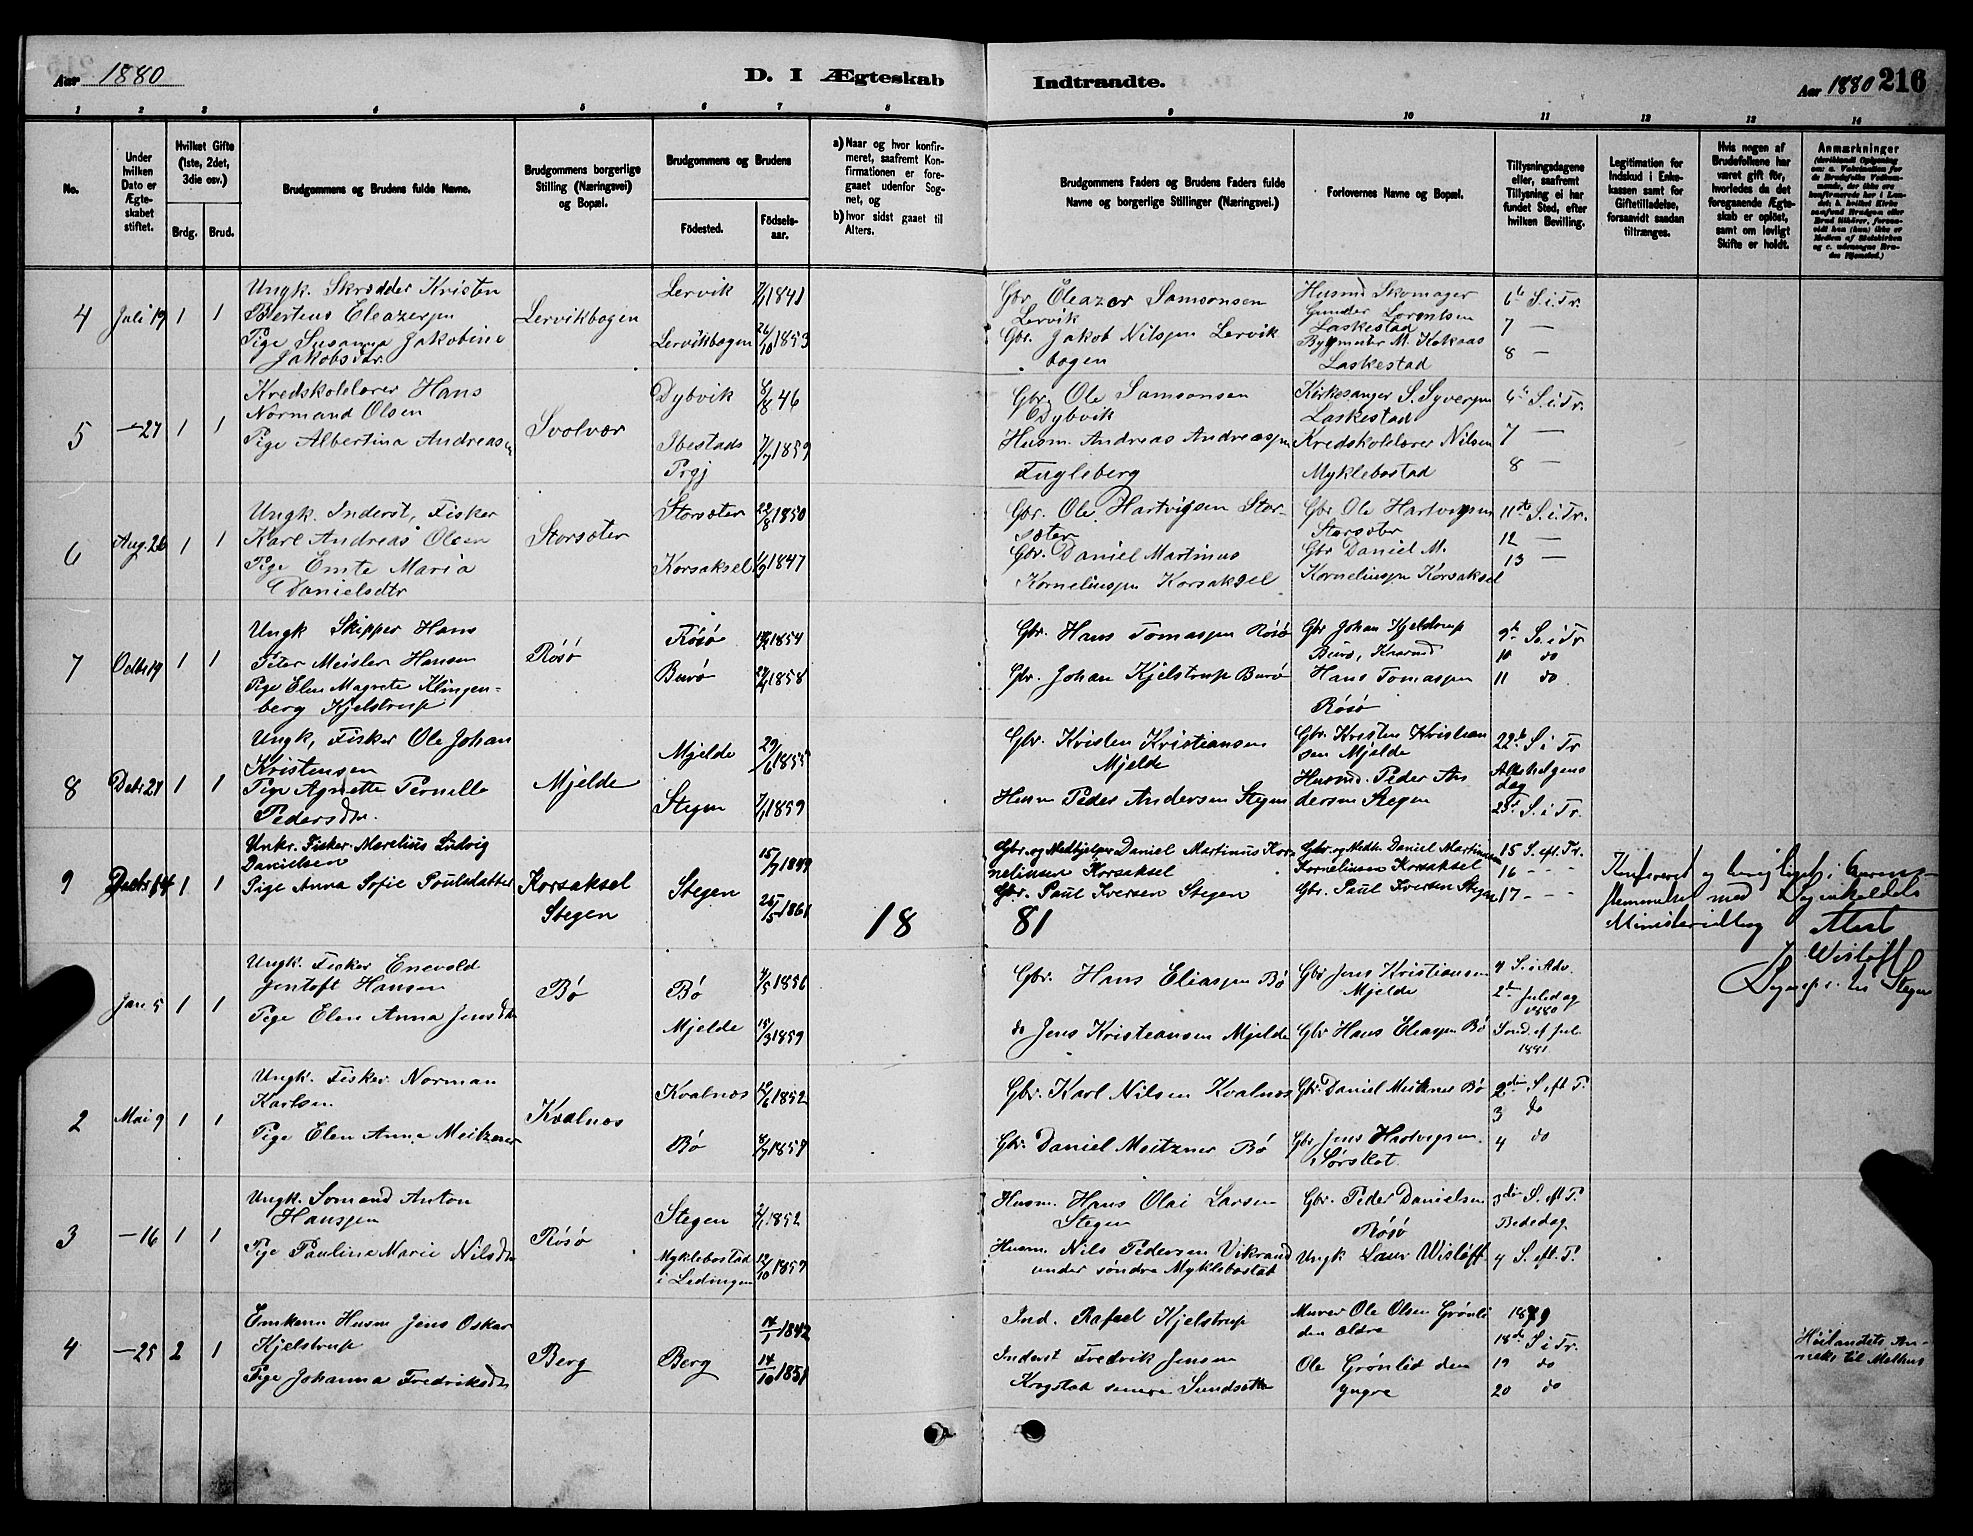 Aar 1880
D. I Ægteskab
Indtraadte.
Aar 1880 216
1 2 3 4 5 6 7 8 9 10 11 12 13 14
No.
Under hvilken Dato er Ægteskabet stiftet.
Hvilket Gifte (1ste, 2det, 3die osv.)
Brdg.
Brud.
Brudgommens og Brudens fulde Navne.
Brudgommens borgerlige Stilling (Næringsvei) og Bopæl.
Brudgommens og Brudens
Födested.
Födselsaar.
a) Naar og hvor konfirmeret, saafremt Konfirmationen er foregaaet udenfor Sognet, og
b) hvor sidst gaaet til Alters.
Brudgommens Faders og Brudens Faders fulde Navne og borgerlige Stillinger (Næringsvei.)
Forlovernes Navne og Bopæl.
Tillysningsdagene eller, saafremt Tillysning ei har fundet Sted, efter hvilken Bevilling.
Legitimation for Indskud i Enkekassen samt for Giftetilladelse, forsaavidt saadan tiltrænges.
Hvis nogen af Brudefolkene har været gift för, hvorledes da det foregaaende Ægteskab er oplöst, samt om lovligt Skifte er holdt.
Anmærkninger
4 Juli 19 1 1
Ungk. Skrædder Kristen
Berteus Eleazersen
Pige Susanna Jakobine
Jakobsdtr.
Lervikbogen
Lervik 1841
Lervikbogen 26/10 1853
Gbr. Eleazer Samsonsen
Lervik
Gbr. Jakob Nilssen Lervik
bogen
Husmd Skomager
Gunder Lorentsen
Laskestad
Bygmester M. Kokaas
Laskestad
6te S. i Tr.
7 —
8 —
5 —27 1 1
Kredsskolelærer Hans
Normand Olsen
Pige Albertina Andreasen
Svolvær
Dybvik 6/8 46
Ibestads
Prgj 1/7 1859
Gbr. Ole Samsonsen
Dybvik
Husm. Andreas Andreassen
Fugleberg
Kirkesanger S. Syversen
Laskestad
Kredsskolelærer Nilsen
Myklebostad
6te S. i Tr.
7 —
8 —
6 Aug. 26 1 1
Ungk. Inderst, Fisker
Karl Andreas Olsen
Pige Emte Maria
Danielsdtr
Storsæter
Storsæter 22/8 1850
Korsaksel 1847
Gbr. Ole Hartvigsen Stor-
sæter
Gbr. Daniel Martinus
Korneliussen Korsaksel
Gbr Ole Hartvigsen
Storsæter
Gbr Daniel M.
Korneliussen Korsaksel
11te S. i Tr.
12 —
13 —
7 Octbr 19 1 1
Ungk Skipper Hans
Peter Meisler Hansen
Pige Elen Magrete Klingen-
berg Kjelstrup
Røsø
Røsø 1854
Burø 1858
Gbr. Hans Tomassen Røsø
Gbr. Johan Kjelstrup Burø
Gbr Johan Kjelstrup
Burø,
Hans Tomassen
Røsø
9de S. i Tr
10 do
11 do
8 1 1
Ungk, Fisker Ole Johan
Kristensen
Pige Agnette Pernille
Pedersdtr.
Mjelde
Mjelde 29/6 1855
Stegen 1859
Gbr. Kristen Kristiansen
Mjelde
Husm Peder Andersen Stegen
Gbr. Kristen Kristian
sen Mjelde
Husmd. Peder An
dersen Stegen
22de S. i Tr
Allehelgens
dag
23de S. i Tr.
9 Decbr 14 1 1
Unkr. Fisker Marelius Ludvig
Danielsen
Pige Anna Sofie Poulsdatter
Korsaksel
Stegen
Stegen 15/7 1849
25/5 1861
Gbr. og Medhjelper Daniel Martinus Kor-
neliusen Korsaksel
Gbr. Paul Iversen Stegen
Gbr. og Medh. Daniel Martinusen
Korneliusen Korsaksel
Gbr. Paul Iversen Stegen
15 S. eft. Tr.
16 - - -
17 - - -
Konfereret og i Overens-
stemmelse med
Attest
Wisløff
Stegen
18 81
Jan 5 1 1
Ungk. Fisker Enevold
Jentoft Hansen
Pige Elen Anna Jensdtr
Bø
Bø 1856
Mjelde 15/3 1859
Gbr. Hans Eliassen Bø
do Jens Kristiansen Mjelde
Gbr Jens Kristiansen
Mjelde
Gbr Hans Eliassen Bø
4 S. i Adv.
2de Juledag
1880
Sønd. ef Jul
1881
2 Mai 9 1 1
Ungk. Fisker Norman
Karlsen
Pige Elen Anna Meitzner
Kvalnæs
Kvalnæs 1852
Bø 1857
Gbr. Karl Nilsen Kvalnæs
Gbr. Daniel Meitzner Bø
Gbr. Daniel Meitzner Bø
Gbr Jens Hartvigsen
Sørskot.
2den S. eft P.
3 do
4 do
3 —16 1 1
Ungk. Somand Anton
Hanssen
Pige Paulina Marie Nilsdtr
Røsø
Stegen 1852
Myklebostad
i Lødingen 12/10 1857
Husm. Hans Olai Larsen
Stegen
Husm. Nils Pedersen Vikrand
under søndre Myklebostad
Gbr. Peder Danielsen
Røsø
Ungk Laur Wisløff
3die S. eft P.
Bededag
4 S. eft. P.
4 —25 2 1
Enkem Husm Jens Oskar
Kjelstrup
Pige Johanna Fredriksdtr
Berg
Berg 14/1 1842
14/10 1851
Ind. Rafael Kjelstrup
Inderst Fredrik Jensen
Krogstad senere Sundsætter
Murer Ole Olsen Grønli
den ældre
Ole Grønlid den
yngre
1879
18de S i Tr.
19 do
20 do
Høilandets An-
neks til Melhus